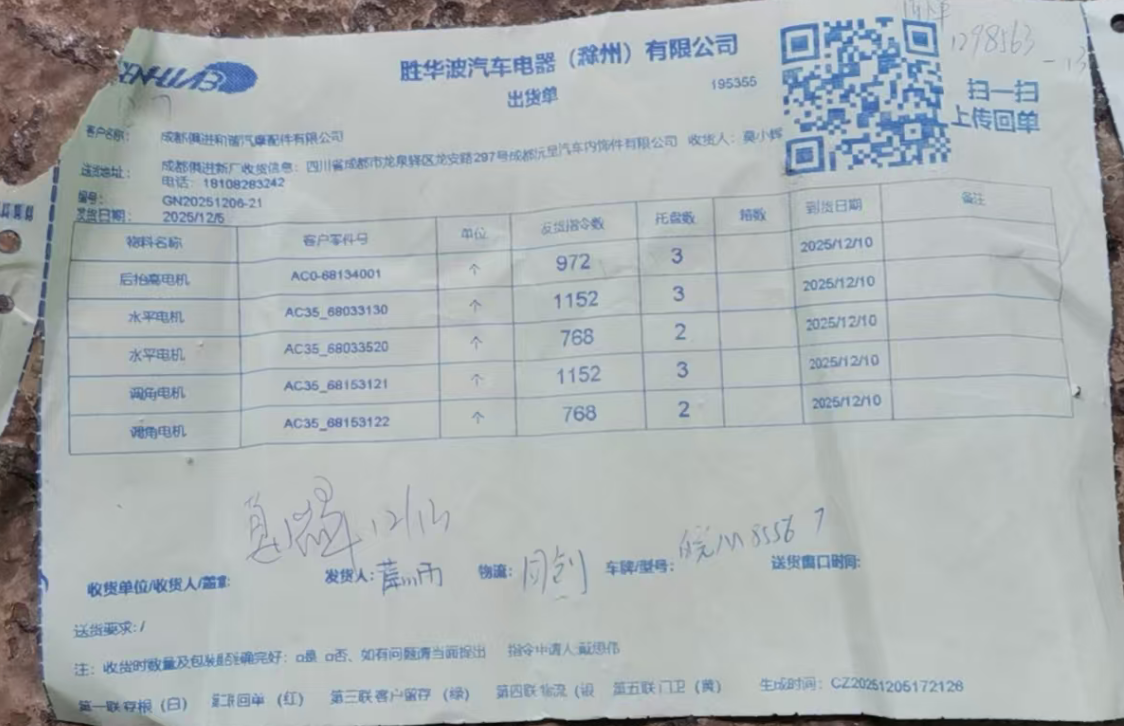 胜华波汽车电器（滁州）有限公司
出货单
195355
1298563
扫一扫
上传回单
客户名称： 成都俱进和谐汽摩配件有限公司
送货地址： 成都俱进新厂收货信息：四川省成都市龙泉驿区龙安路297号成都沅呈汽车内饰件有限公司 收货人：莫小辉
电话：18108283242
编号： GN20251206-21
发货日期： 2025/12/5
物料名称 客户零件号 单位 发货指令数 托盘数 箱数 到货日期 备注
后抬高电机 AC0-68134001 个 972 3 2025/12/10
水平电机 AC35_68033130 个 1152 3 2025/12/10
水平电机 AC35_68033520 个 768 2 2025/12/10
调角电机 AC35_68153121 个 1152 3 2025/12/10
调角电机 AC35_68153122 个 768 2 2025/12/10
收货单位/收货人/盖章: 发货人: 物流: 车牌/型号: 送货窗口时间:
送货要求:/
注：收货时数量及包装是否确完好：□是 □否、如有问题请当面提出 指令申请人:戴思伟
第一联存根（白） 第二联回单（红） 第三联客户留存（绿） 第四联物流（银 第五联门卫（黄） 生成时间：CZ20251205172126